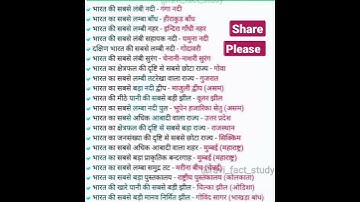 _fact_study
भारत की सबसे लंबी नदी - गंगा नदी
भारत का सबसे लम्बा बाँध - हीराकुड बाँध
भारत की सबसे लम्बी नहर - इन्दिरा गाँधी नहर
भारत की सबसे लंबी सहायक नदी - यमुना नदी
दक्षिण भारत की सबसे लम्बी नदी - गोदावरी
भारत की सबसे लंबी सुरंग - चेनानी-नाशरी सुरंग
भारत का क्षेत्रफल की दृष्टि से सबसे छोटा राज्य - गोवा
भारत का सबसे लम्बी तटरेखा वाला राज्य - गुजरात
भारत का सबसे बड़ा नदी द्वीप - माजुली द्वीप (असम)
भारत की मीठे पानी की सबसे बड़ी झील - वूलर झील
भारत का सबसे लम्बा नदी पुल - भूपेन हजारिका सेतु (असम)
भारत का सबसे अधिक आबादी वाला राज्य - उत्तर प्रदेश
भारत का क्षेत्रफल की दृष्टि से सबसे बड़ा राज्य - राजस्थान
भारत का जनसंख्या की दृष्टि से सबसे छोटा राज्य - सिक्किम
भारत का सबसे अधिक आबादी वाला शहर - मुम्बई (महाराष्ट्र)
भारत का सबसे बड़ा प्राकृतिक बन्दरगाह - मुम्बई (महाराष्ट्र)
भारत का सबसे लम्बा समुद्र तट - मरीना बीच (चेन्नई)
भारत का सबसे बड़ा पुस्तकालय - राष्ट्रीय पुस्तकालय (कोलकाता)
भारत की खारे पानी की सबसे बड़ी झील - चिल्का झील (ओडिशा)
भारत की सबसे बड़ी मानव निर्मित झील - गोविंद सागर (भाखड़ा बांध)
Share
Please
_fact_study